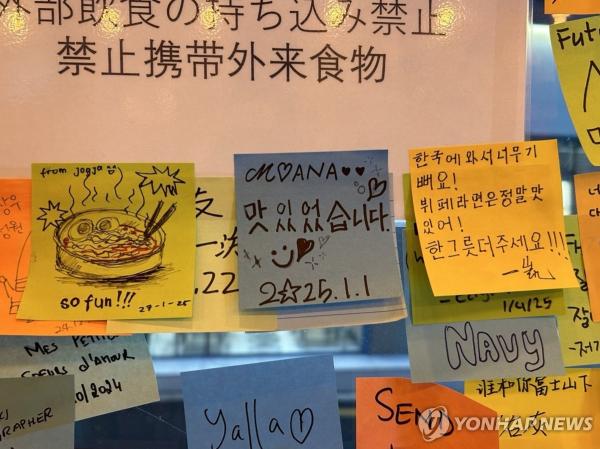 外部飲食の持ち込み禁止
禁止携带外来食物
from jogja
so fun!!!
27-1-25
友
一次
.22
24.12
M♡ANA♥♥
맛있었습니다.
2☆25.1.1
한국에와서너무기
뻐요!
뷔페라면은정말맛
있어!
한그릇더주세요!!!
1/4/25
Futu
NAVY
谁和你富士山下
Mes Petits
Coeurs d'amour
10/2024
GRAPHER
yalla♡
SEND
YONHAPNEWS